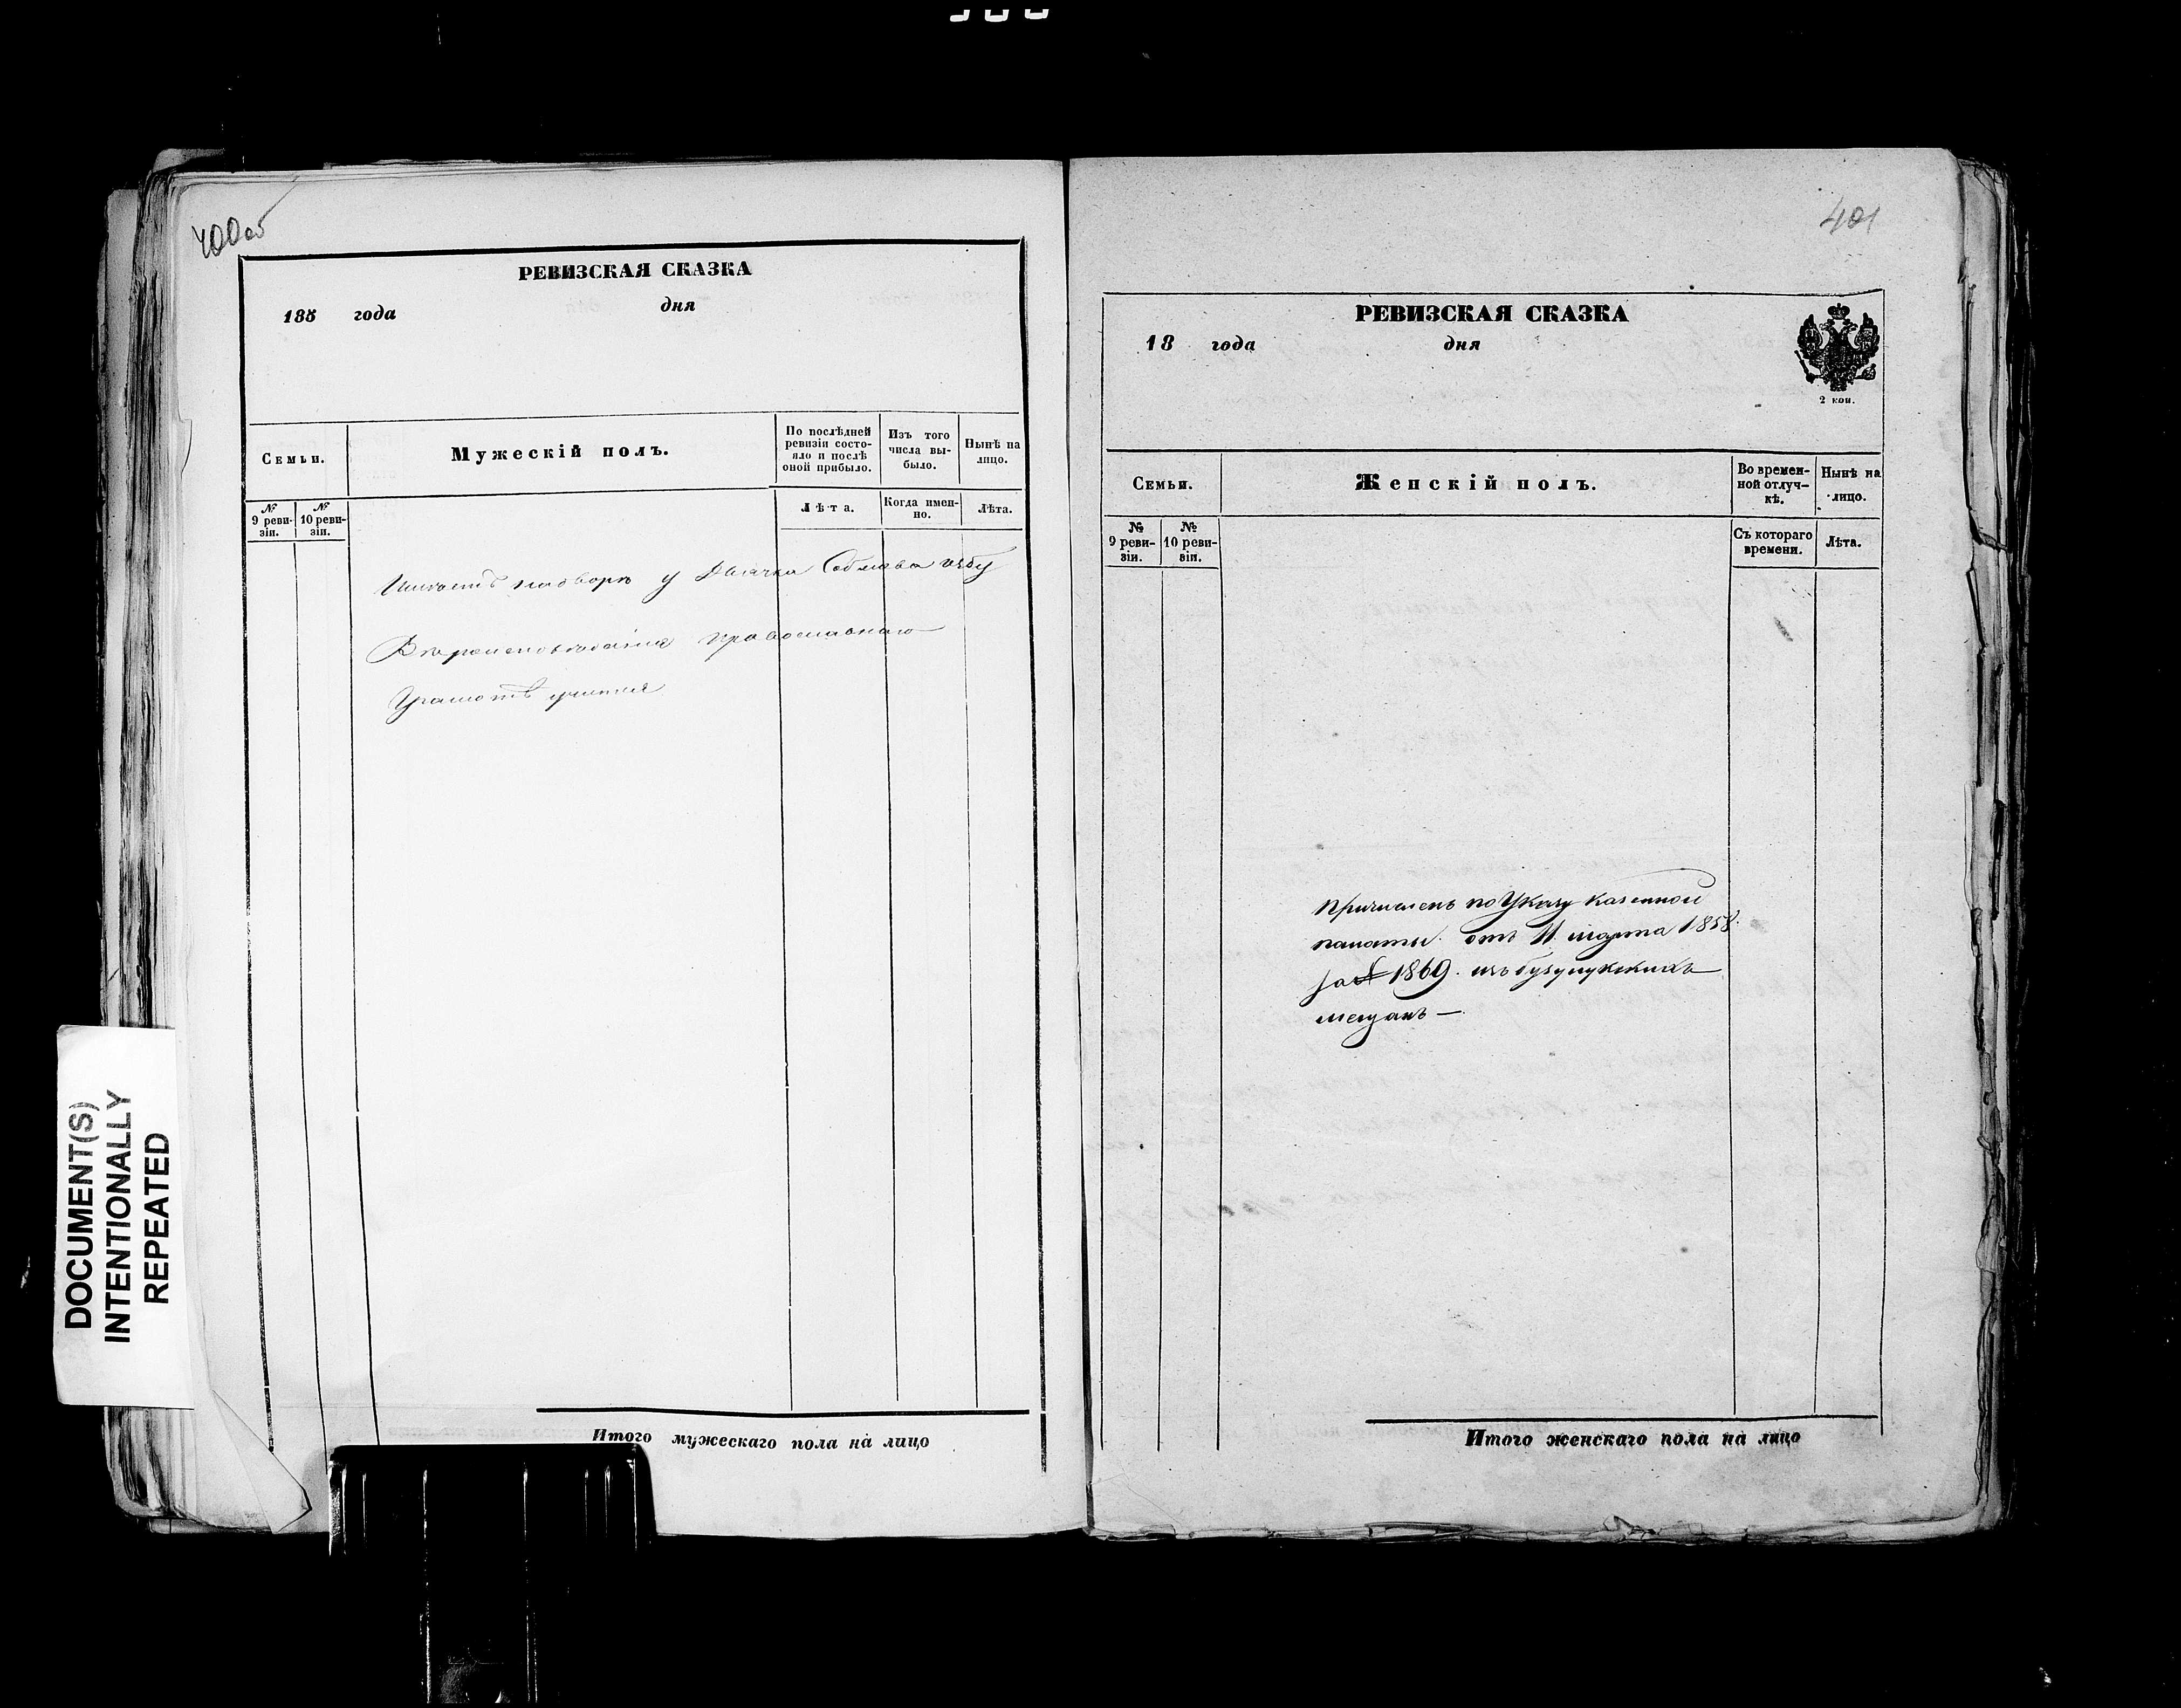 400 об
РЕВИЗСКАЯ СКАЗКА
185 года дня
Семьи.
Мужескій полъ.
По послѣдней
ревизіи состо-
яло и послѣ
оной прибыло.
Изъ того
числа вы-
было.
Нынѣ на
лицо.
№
9 реви-
зіи.
№
10 реви-
зіи.
Лѣта.
Когда имен-
но.
Лѣта.
у Дьячка
православнаго
Грамотѣ
Итого мужескаго пола на лицо
DOCUMENT(S)
INTENTIONALLY
REPEATED
401
РЕВИЗСКАЯ СКАЗКА
18 года дня
2 коп.
Семьи.
Женскій полъ.
Во времен-
ной отлуч-
кѣ.
Нынѣ на
лицо.
№
9 реви-
зіи.
№
10 реви-
зіи.
Съ котораго
времени.
Лѣта.
Причисленъ по Указу казенной
палаты. отъ 11. марта 1858.
за № 1869. изъ бузулукскихъ
мещанъ —
Итого женскаго пола на лицо